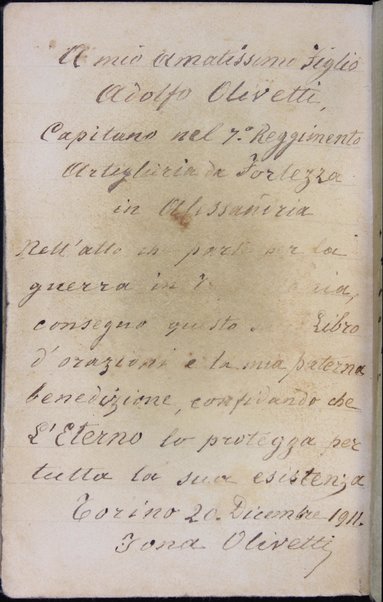 A mio amatissimo figlio
Adolfo Olivetti,
Capitano nel 7.º Reggimento
Artiglieria da Fortezza
in Alessandria
Nell'atto che parte per la
guerra in
consegno questo Libro
d'orazioni e la mia paterna
benedizione, confidando che
L'Eterno lo protegga per
tutta la sua esistenza
Torino 20. Dicembre 1911.
Jona Olivetti